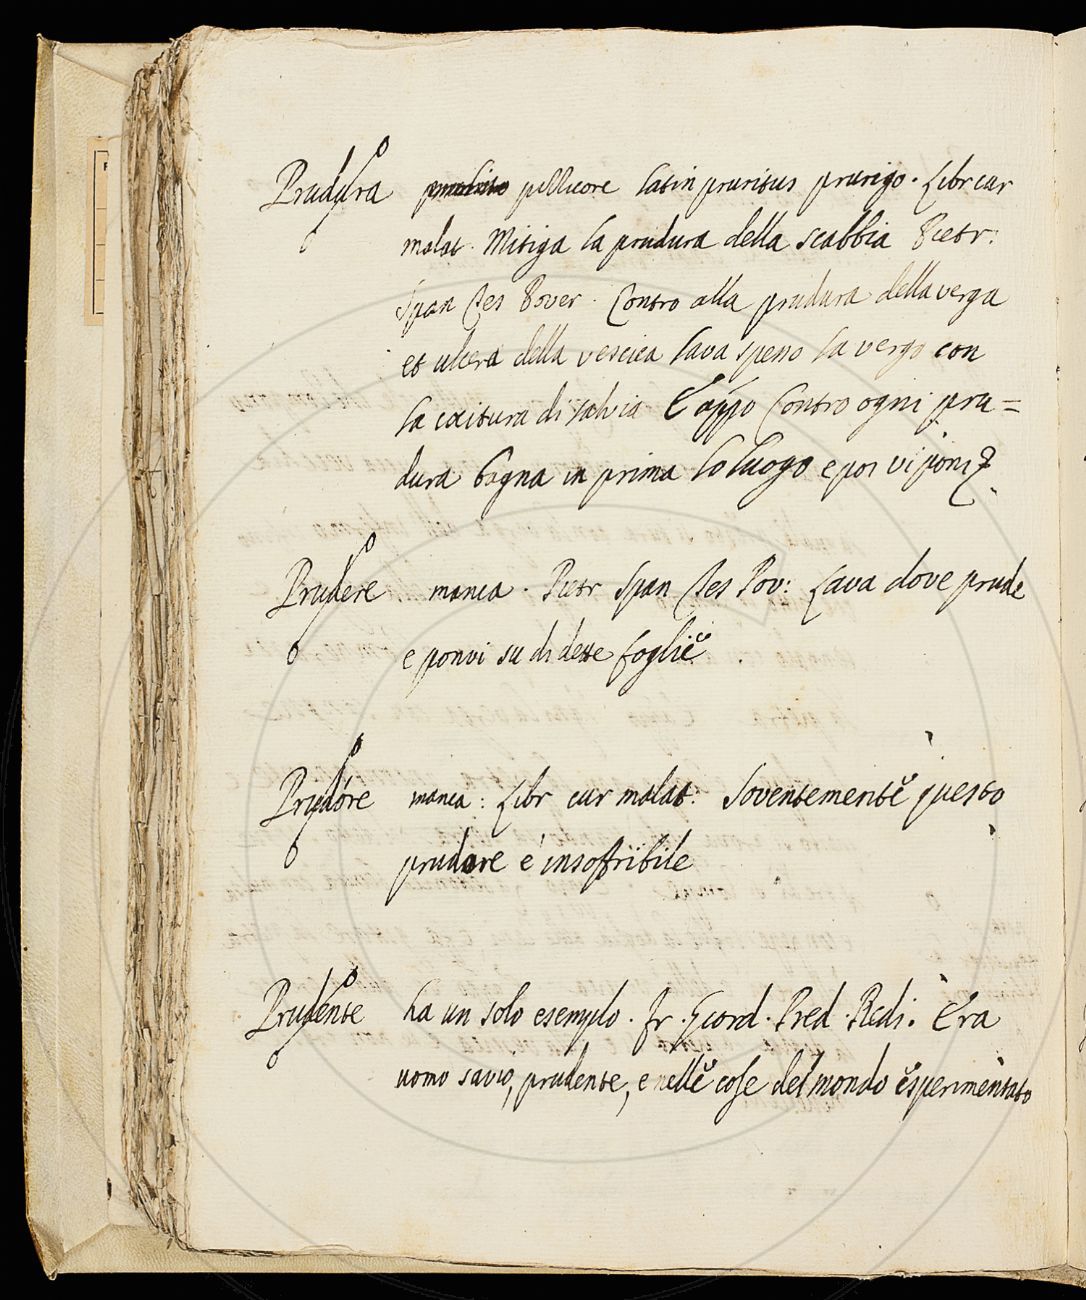 Prudura pizzicore latin pruritus prurigo. Libr cur
malat. Mitiga la prudura della scabbia Pietr:
Span Tes Pover. Contro alla prudura della verga
et ulcera della vescica lava spesso la verga con
la coitura di salvia E appo Contro ogni pru=
dura bagna in prima lo luogo e poi vi poni
Prudere manca. Pietr Span Tes Pov: Lava dove prude
e ponvi su di dette foglie
Prudore manca: Libr cur malat: Soventemente questo
prudore è insoffribile
Prudente ha un solo esempio. Fr. Giord. Pred. Redi. Era
uomo savio, prudente, e nelle cose del mondo esperimentato